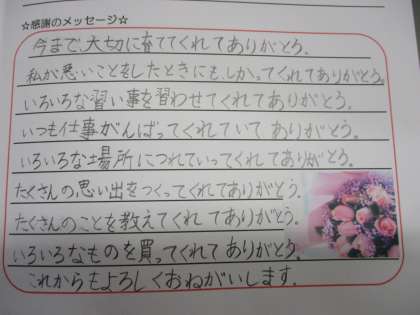 ☆感謝のメッセージ☆
今まで、大切に育ててくれてありがとう。
私が悪いことをしたときにも、しかってくれてありがとう。
いろいろな習い事を習わせてくれてありがとう。
いつも仕事がんばってくれていてありがとう。
いろいろな場所につれていってくれてありがとう。
たくさんの思い出をつくってくれてありがとう。
たくさんのことを教えてくれてありがとう。
いろいろなものを買ってくれてありがとう。
これからもよろしくおねがいします。